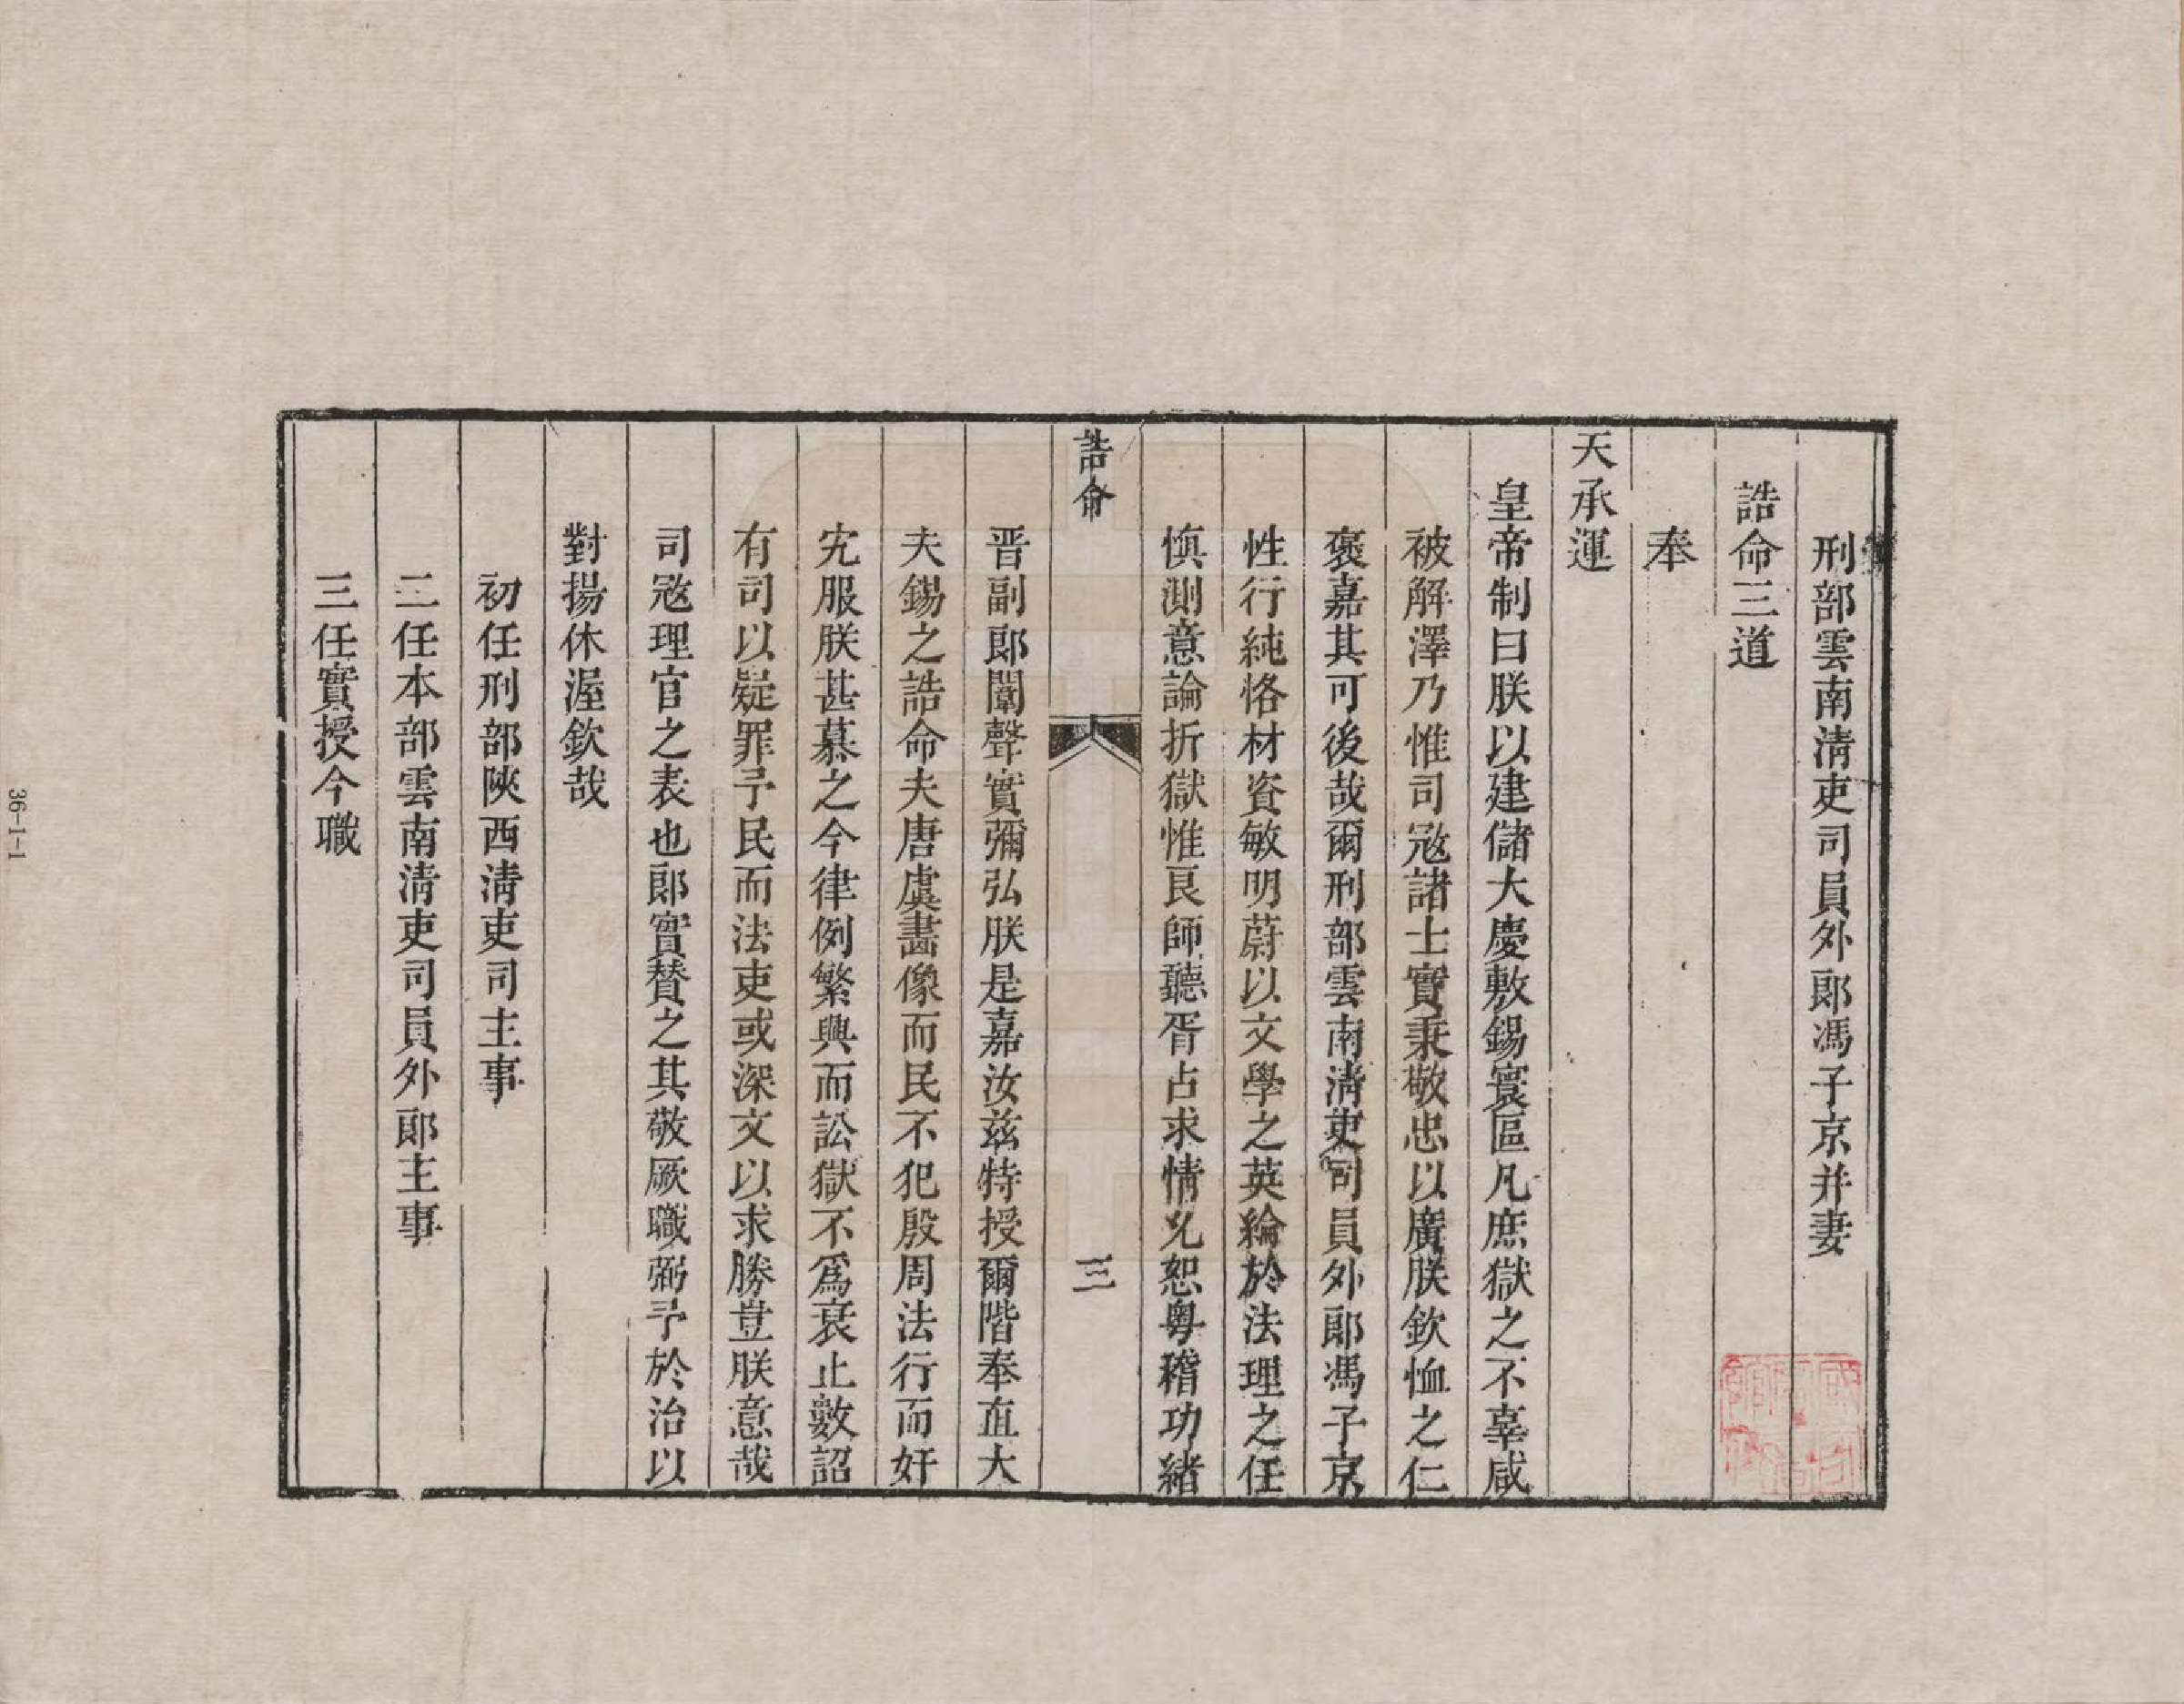 刑部雲南淸吏司員外郞馮子京并妻
誥命三道
奉
天承運
皇帝制曰朕以建儲大慶敷錫寰區凡庶獄之不辜咸
被解澤乃惟司宼諸士實秉敬忠以廣朕欽恤之仁
褒嘉其可後哉爾刑部雲南淸吏司員外郞馮子京
性行純恪材資敏明蔚以文學之英綸於法理之任
愼測意論折獄惟良師聽胥占求情允恕粤稽功緖
誥命
三
晋副郞闈聲實彌弘朕是嘉汝兹特授爾階奉直大
夫錫之誥命夫唐虞畵像而民不犯殷周法行而奸
宄服朕甚慕之今律例繁興而訟獄不爲衰止數詔
有司以疑罪予民而法吏或深文以求勝豈朕意哉
司宼理官之表也郞實賛之其敬厥職弼予於治以
對揚休渥欽哉
初任刑部陝西淸吏司主事
二任本部雲南淸吏司員外郞主事
三任實授今職
36-1-1